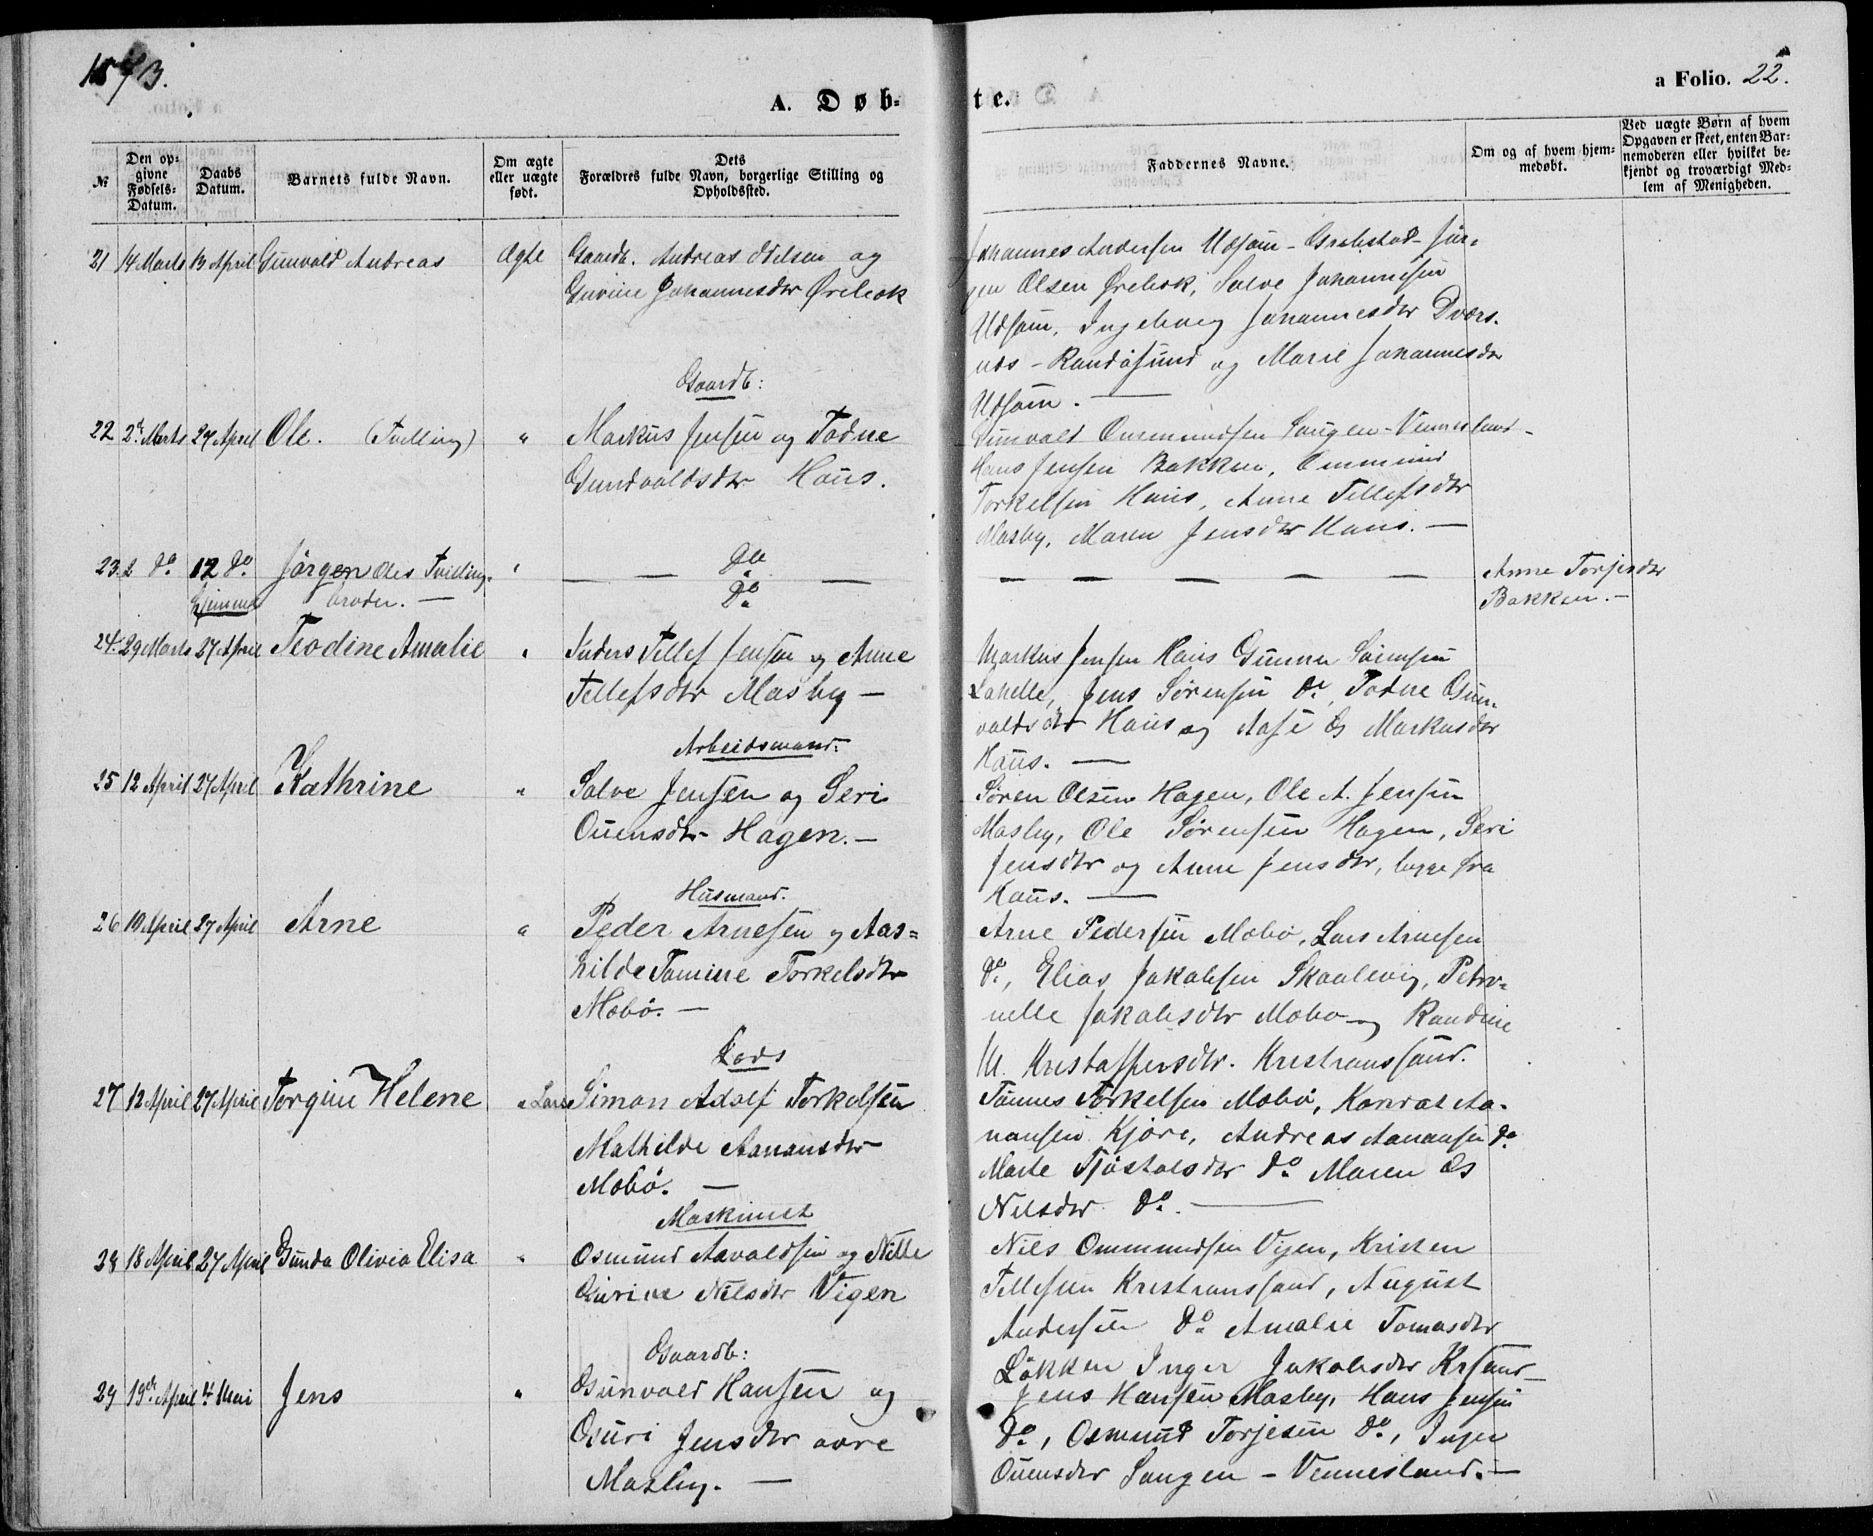 1873.
A. Døb-
te.
a Folio. 22.
№
Den op-
givne
Fødsels-
Datum.
Daabs
Datum.
Barnets fulde Navn.
Om ægte
eller uægte
født.
Dets
Forældres fulde Navn, borgerlige Stilling og
Opholdssted.
Faddernes Navne.
Om og af hvem hjem-
medøbt.
Ved uægte Børn af hvem
Opgaven er skeet, enten Bar-
nemoderen eller hvilket be-
kjendt og troværdigt Med-
lem af Menigheden.
21 14 Marts 13 April Gunvald Andreas Ægte Gaardb. Andreas Odelsen og
Gurine Johannesdtr Ørebek
Johannes Andersen Udsøm - Grebstad - Jør-
gen Olsen Ørebek, Salve Johannesen
Udsøm, Ingeborg Johannesdtr Dværs-
nes - Randøsund og Marie Johannesdtr
Udsøm. —
Gaardb:
22 2den Marts 27 April Ole. (Tvilling) " Markus Jensen og Todne
Gundvaldsdtr Haus.
Gunvald Ommundsen Saugen - Vennesland -
Hans Jensen Bakken, Ommund
Torkelsen Haus, Anne Tellefsdtr
Mosby, Maren Jensdtr Haus. —
23. 2 do 12 do Jørgen Oles Tvilling- " — — do —
Hjemme broder. — do
— — — — — —
Anne Torjesdtr
Bakken. —
24. 29 Marts 27 April Teodine Amalie " Anders Tellef Jensen og Anne
Tellefsdtr Mosby —
Markus Jensen Haus Gunner Sørensen
Lahelle, Jens Sørensen do, Todne Gun-
valdsdtr Haus og Aase Markusdtr
Haus. —
Arbeidsmand:
25 12 April 27 April Kathrine " Salve Jensen og Seri
Ouensdtr Hagen. —
Søren Olsen Hagen, Ole A. Jensen
Mosby, Ole Sørensen Hagen, Seri
Jensdtr og Anne Jensdtr, begge fra
Haus. —
Husmand.
26 10 April 27 April Arne " Peder Arnesen og Aas-
hilde Tomine Torkelsdtr
Mobø. —
Arne Pedersen Mobø, Lars Arnesen
do, Elias Jakobsen Skaalevig, Petro-
nelle Jakobsdtr Mobø og Randine
M. Kristoffersdtr. Kristianssand.
Lods
27 12 April 27 April Torgun Helene " Simon Adolf Torkelsen
Mathilde Aanonsdtr
Mobø. —
Tønnes Torkelsen Mobø, Konrad Aa-
nonsen Kjøre, Andreas Aanonsen do
Marte Tjøstolsdtr do Maren
Nilsdtr do. —
Maskinist
28 18 April 27 April Gunda Olivia Elisa " Osmund Aavoldsen og Nille
Gurine Nilsdtr Vigen
Nils Ommundsen Vigen, Kristen
Tellefsen Kristianssand, August
Andersen do Amalie Tomasdtr
Løkken Inger Jakobsdtr Krsand —
Gaardb:
29 19de April 4 Mai Jens " Gunvald Hansen og
Guri Jensdtr øvre
Mosby. —
Jens Hansen Mosby, Hans Jensen
do, Osmund Torjesen do, Inger
Ouensdtr Saugen - Vennesland. —